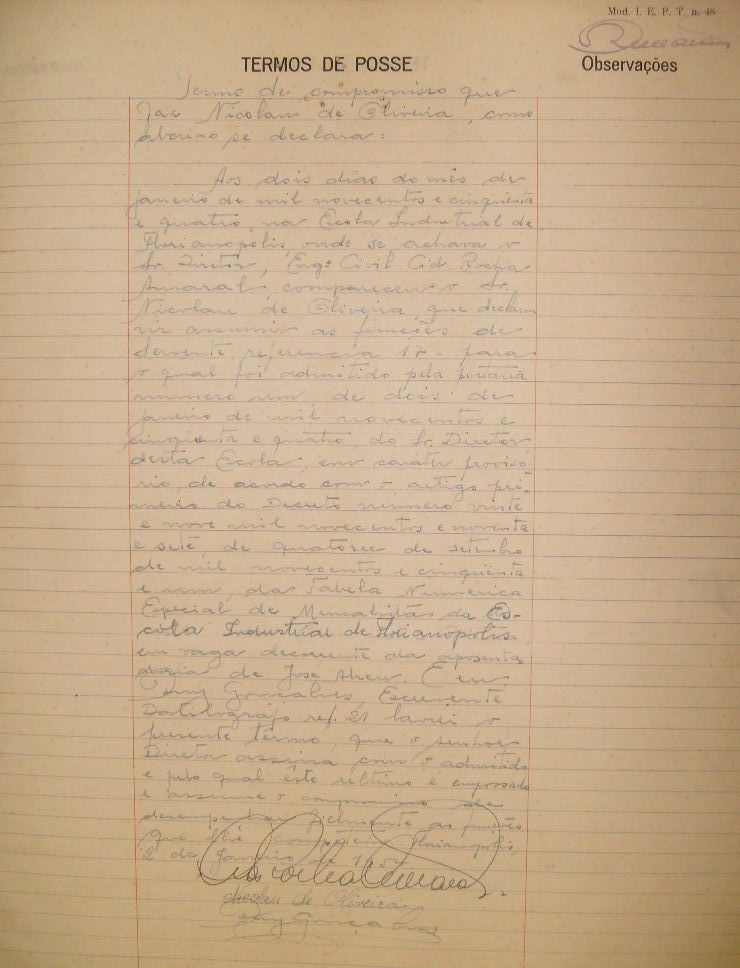 Mod. I. E. P. T. n. 48
TERMOS DE POSSE
Observações
Termo de compromisso que
faz Nicolau de Oliveira, como
abaixo se declara:
Aos dois dias do mês de
janeiro de mil novecentos e cinqüenta
e quatro, na Escola Industrial de
Florianópolis, onde se achava o
Sr. Diretor, Engº Civil Cid Rocha
Amaral, compareceu o Sr.
Nicolau de Oliveira, que declarou
vir assumir as funções de
Servente referencia 17 - para
o qual foi admitido pela portaria
numero um, de dois de
janeiro de mil novecentos e
cinqüenta e quatro, do Sr. Diretor
desta Escola, em caráter provisó-
rio, de acordo com o artigo pri-
meiro do Decreto numero vinte
e nove mil novecentos e noventa
e sete, de quatorze de setembro
de mil novecentos e cinqüenta
e um, da Tabela Numerica
Especial de Mensalistas da Es-
cola Industrial de Florianopolis
em vaga decorrente da aposenta
doria de José Abreu. E eu
Gonçalves, Escrevente
Datilografo ref. 21 lavrei o
presente termo, que o senhor
Diretor assina com o admitido
e pelo qual êste ultimo é empossado
e assume o compromisso de
desempenhar fielmente as funções
que lhe competem. Florianopolis,
2 de Janeiro de 1954
Cid Rocha Amaral.
Nicolau de Oliveira
Gonçalves